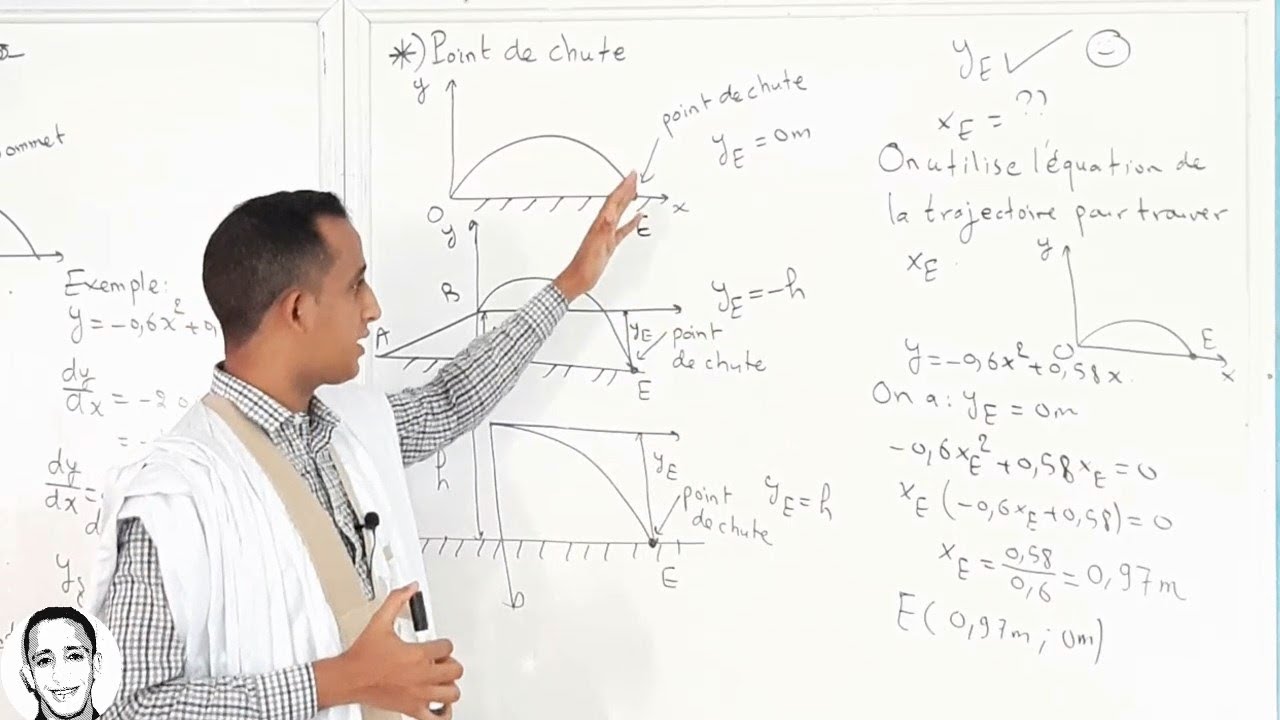 ommet
Exemple:
y = -0,6x² + 0,
dy/dx = -2 0
= -
dy/dx =
*) Point de chute
y
point de chute
y_E = 0m
O
E
x
y
B
A
y_E
y_E = -h
point
de chute
E
h
y_E
y_E = h
point
de chute
E
y_E ✓
x_E = ??
On utilise l'équation de
la trajectoire pour trouver
x_E
y
O
E
x
y = -0,6x² + 0,58x
On a : y_E = 0m
-0,6x_E² + 0,58x_E = 0
x_E (-0,6x_E + 0,58) = 0
x_E = 0,58/0,6 = 0,97m
E(0,97m ; 0m)